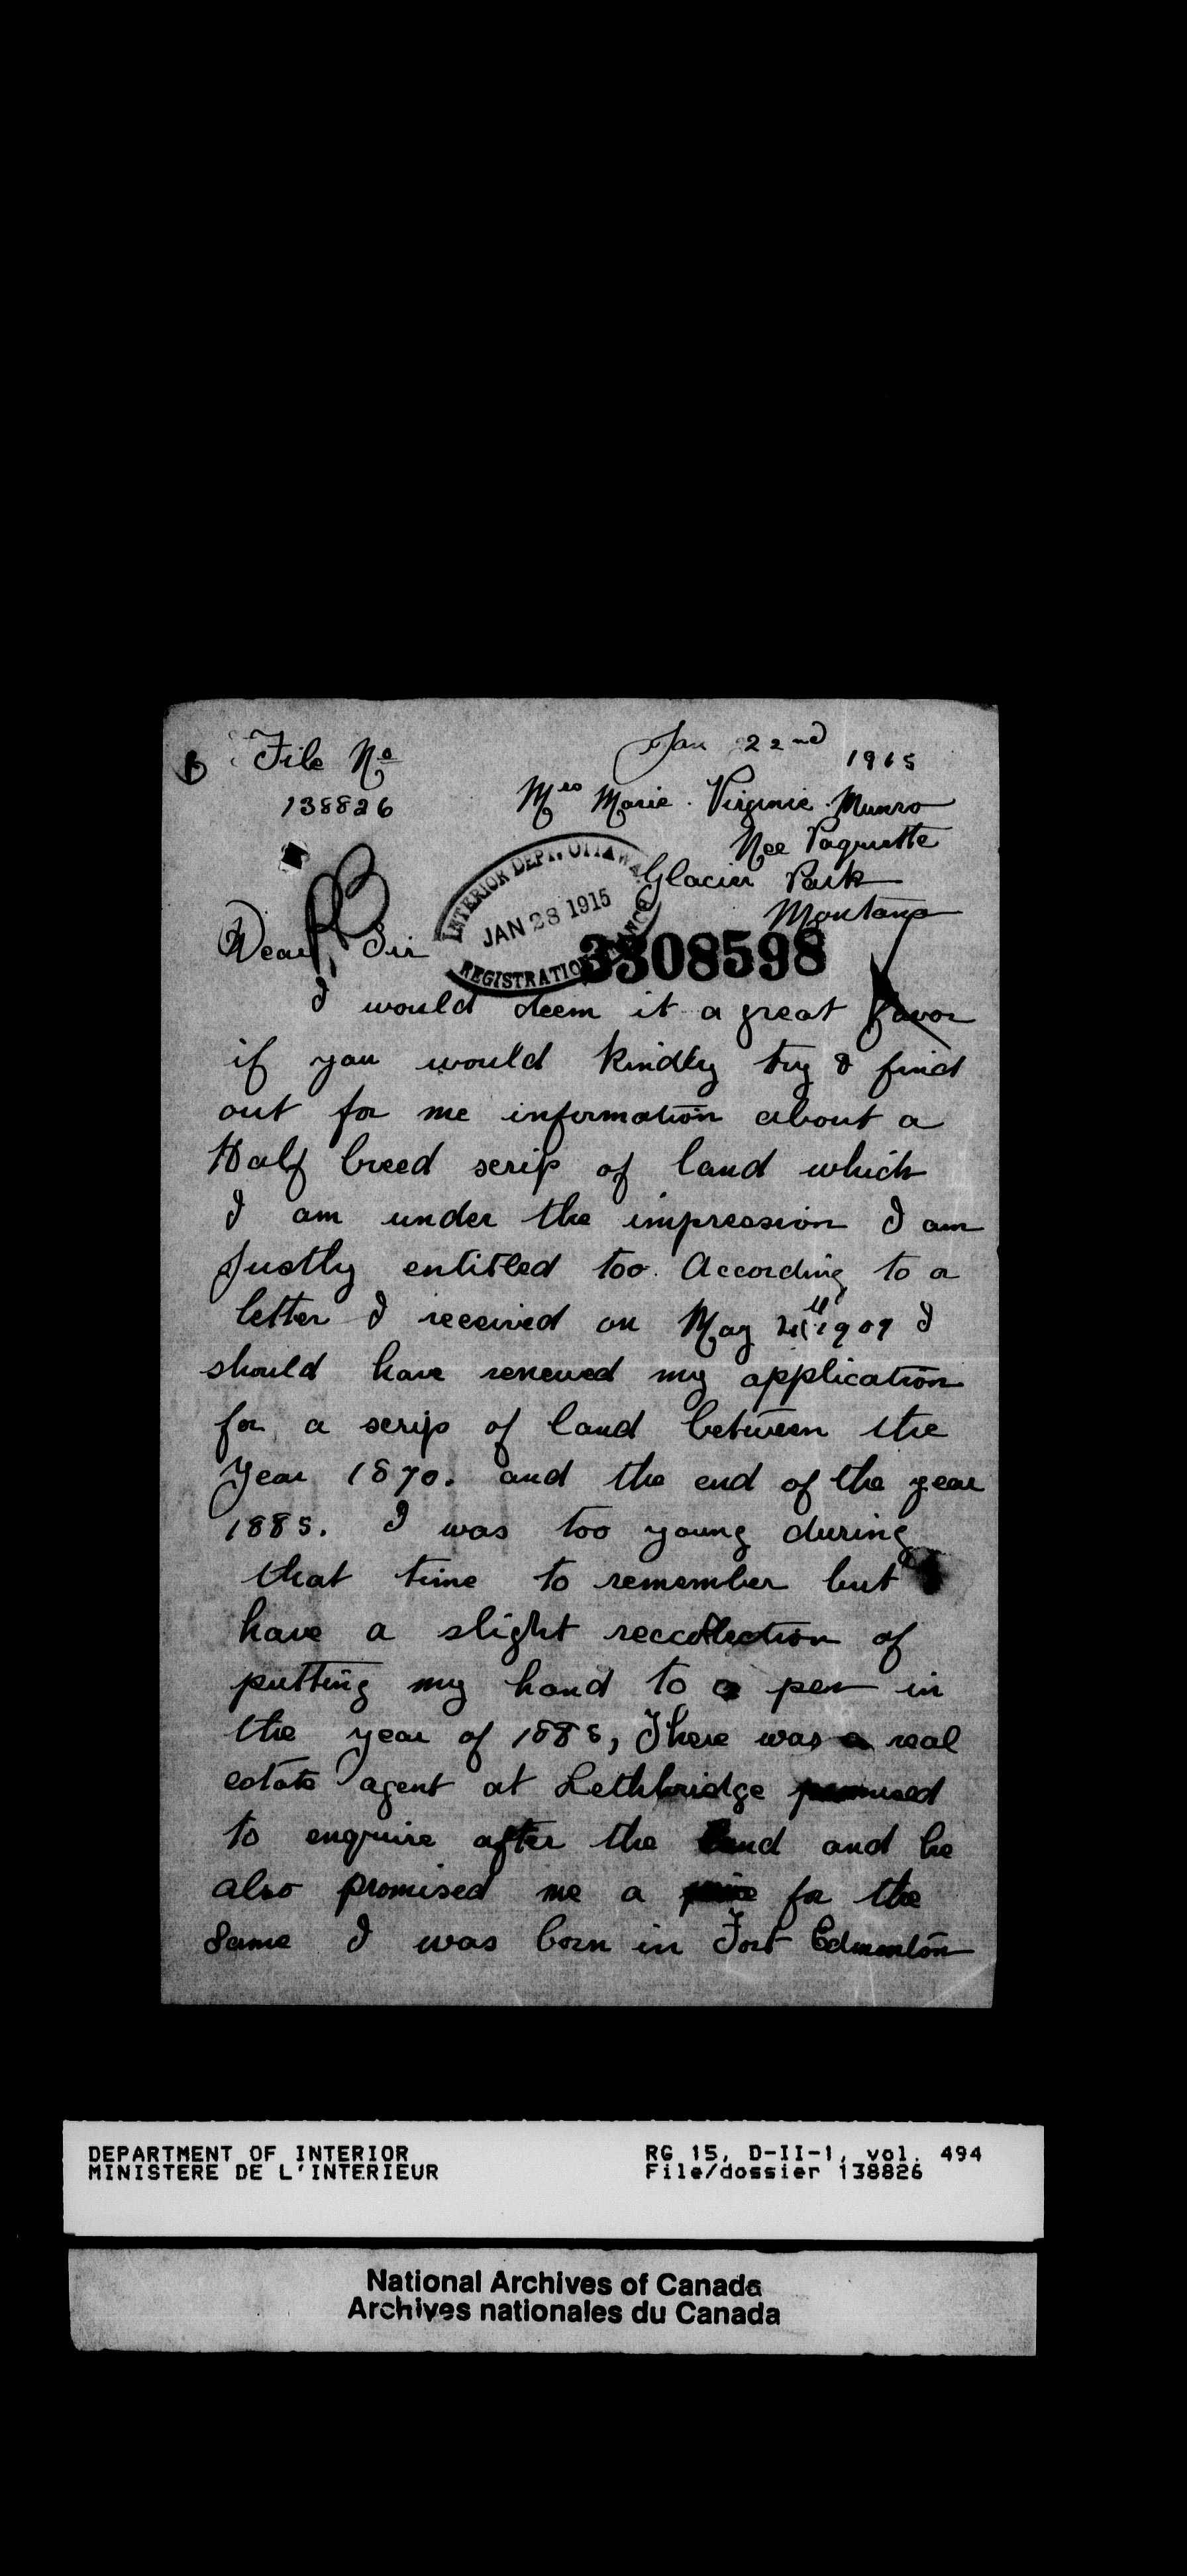 File No
138826
Jan 22nd 1915
Mrs Marie. Virginie. Munro
Nee Paquette
Glacier Park
Montana
INTERIOR DEPT. OTTAWA.
JAN 28 1915
REGISTRATION BRANCH
3308598
Dear Sir
I would deem it a great favor
if you would kindly try & find
out for me information about a
Half breed scrip of land which
I am under the impression I am
Justly entitled too. According to a
letter I received on May 1909 I
should have renewed my application
for a scrip of land between the
Year 1870. and the end of the year
1885. I was too young during
that time to remember but
have a slight reccollection of
putting my hand to a pen in
the year of 1885, There was a real
estate agent at Lethbridge promised
to enquire after the land and he
also promised me a price for the
Same I was born in Fort Edmonton
DEPARTMENT OF INTERIOR
MINISTERE DE L'INTERIEUR
RG 15, D-II-1, vol. 494
File/dossier 138826
National Archives of Canada
Archives nationales du Canada